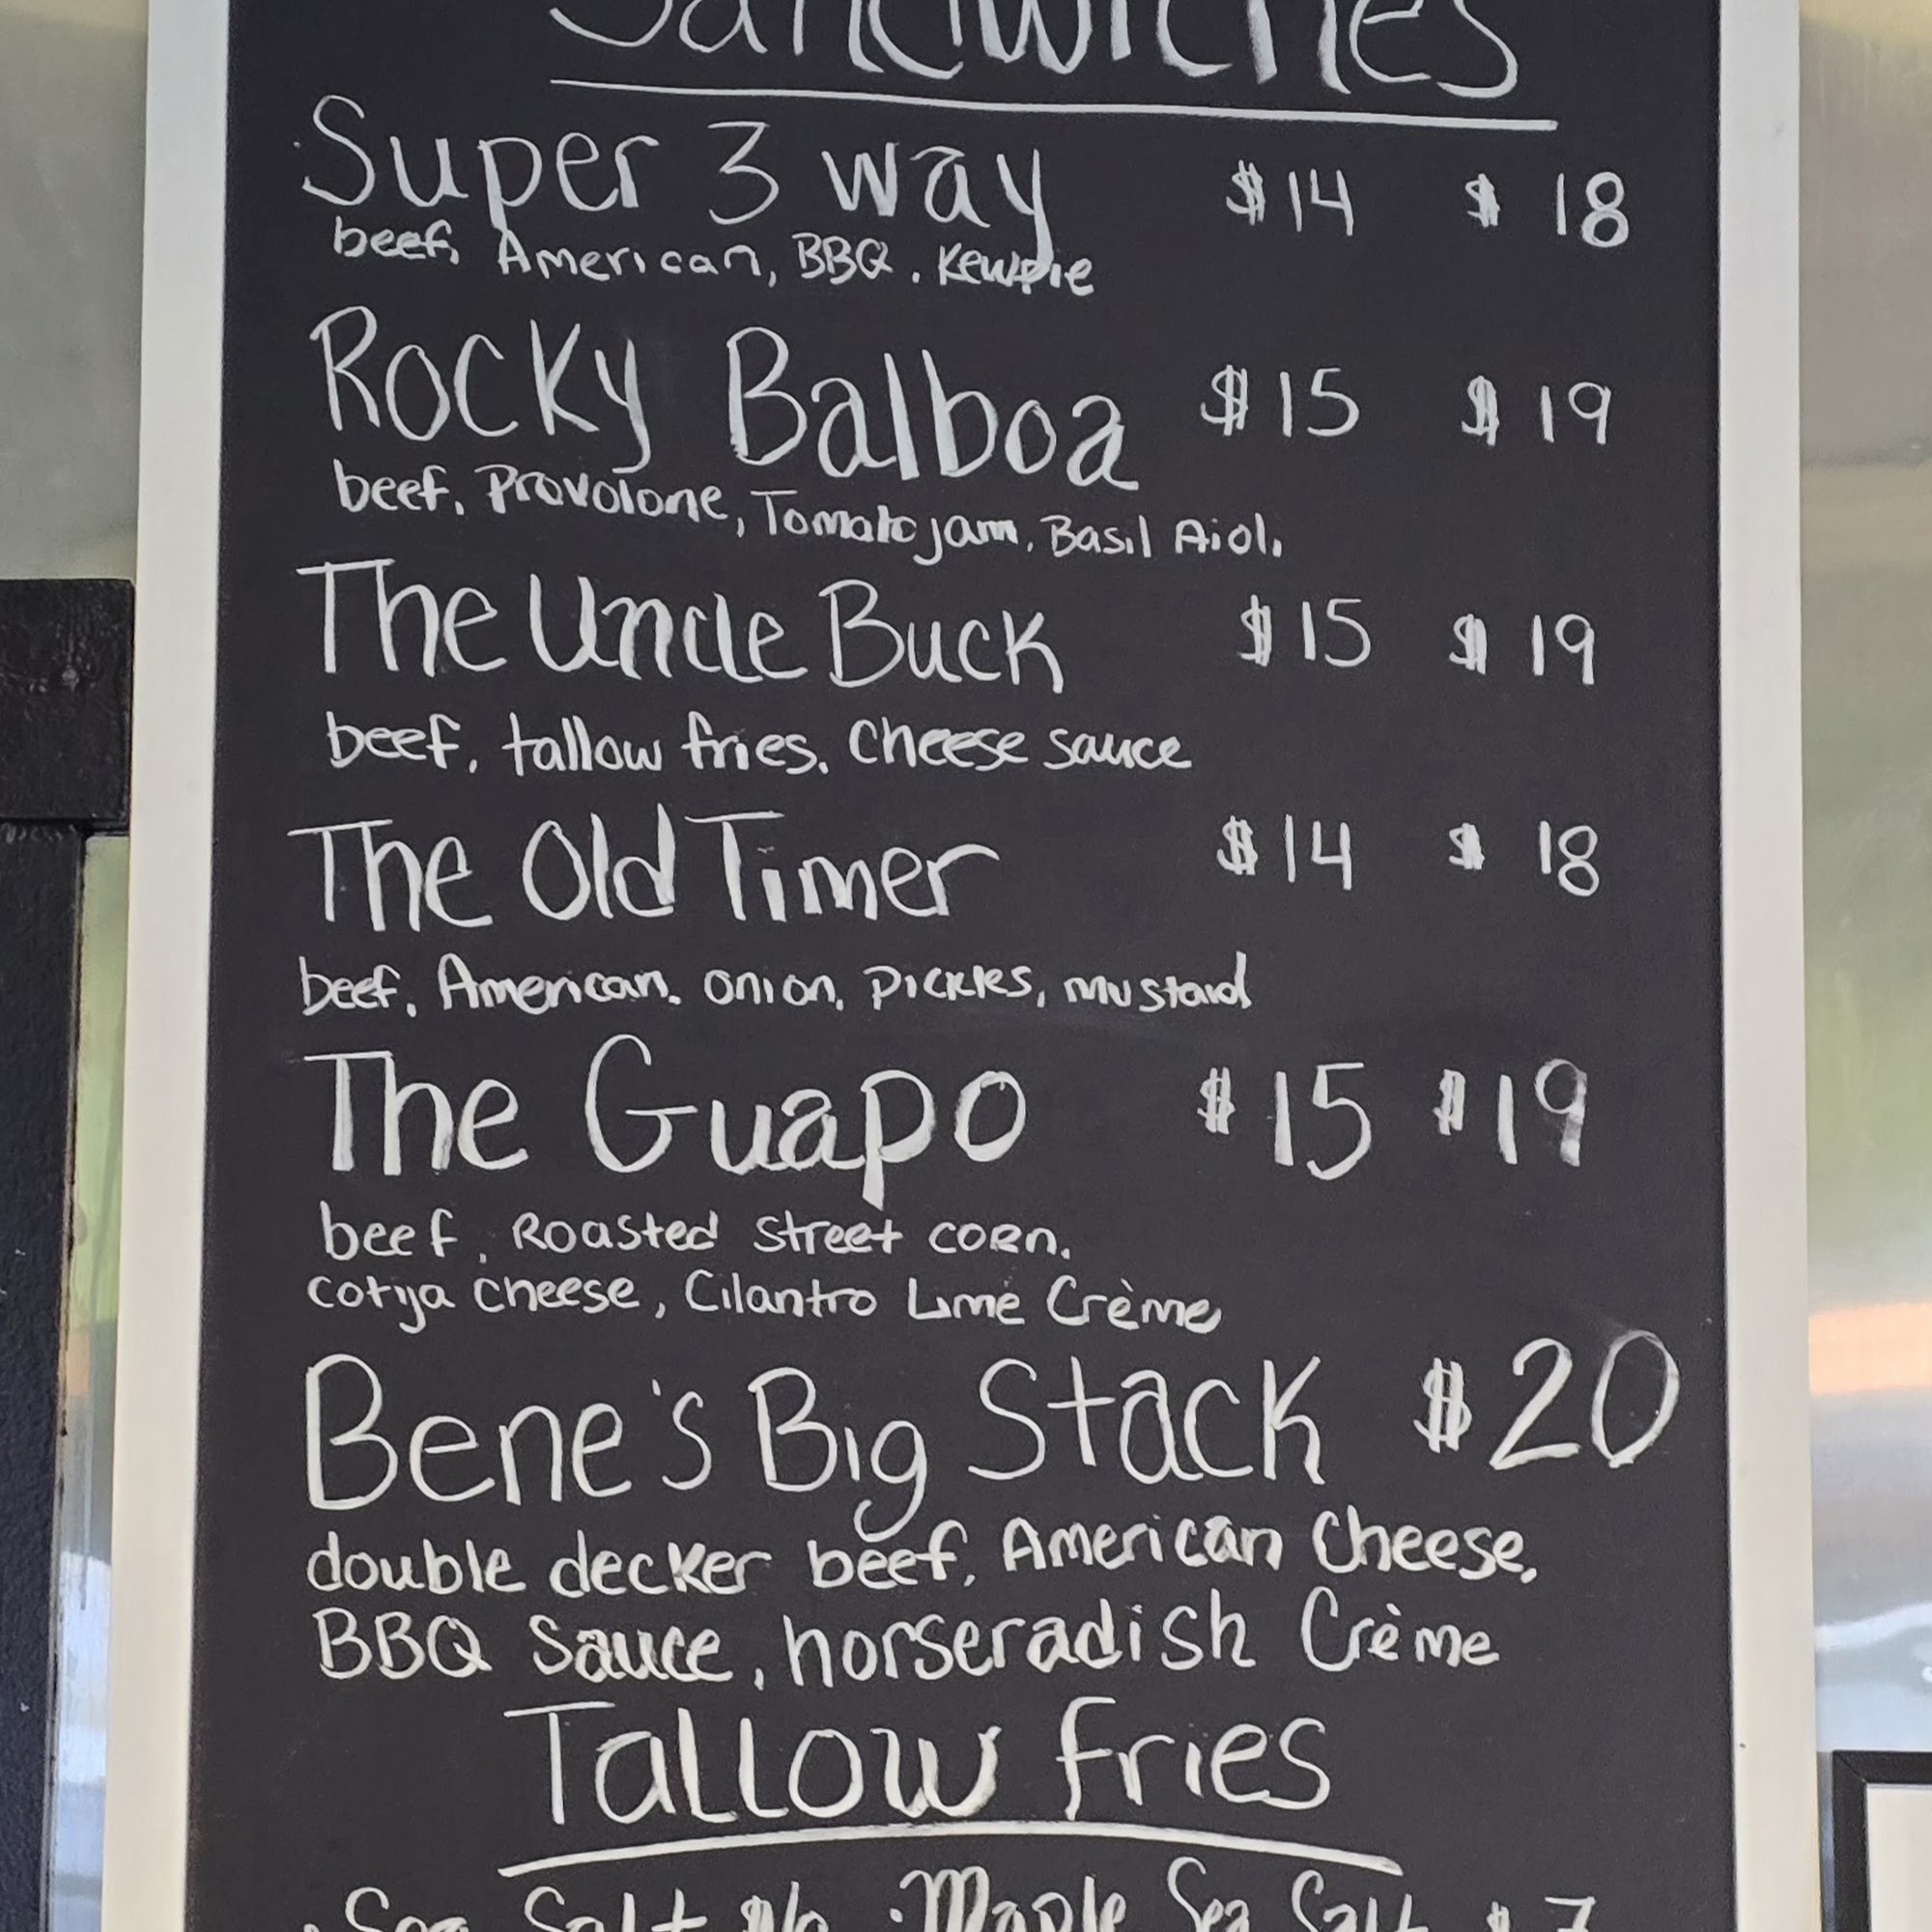 Sandwiches
Super 3 way $14 $18
beef, American, BBQ, Kewpie
Rocky Balboa $15 $19
beef, Provolone, Tomato jam, Basil Aioli
The Uncle Buck $15 $19
beef, tallow fries, cheese sauce
The Old Timer $14 $18
beef, American, onion, pickles, mustard
The Guapo $15 $19
beef, Roasted street corn,
cotija cheese, Cilantro Lime Crème
Bene's Big Stack $20
double decker beef, American Cheese,
BBQ Sauce, horseradish Crème
Tallow fries
· Sea Salt $6 · Maple Sea Salt $7